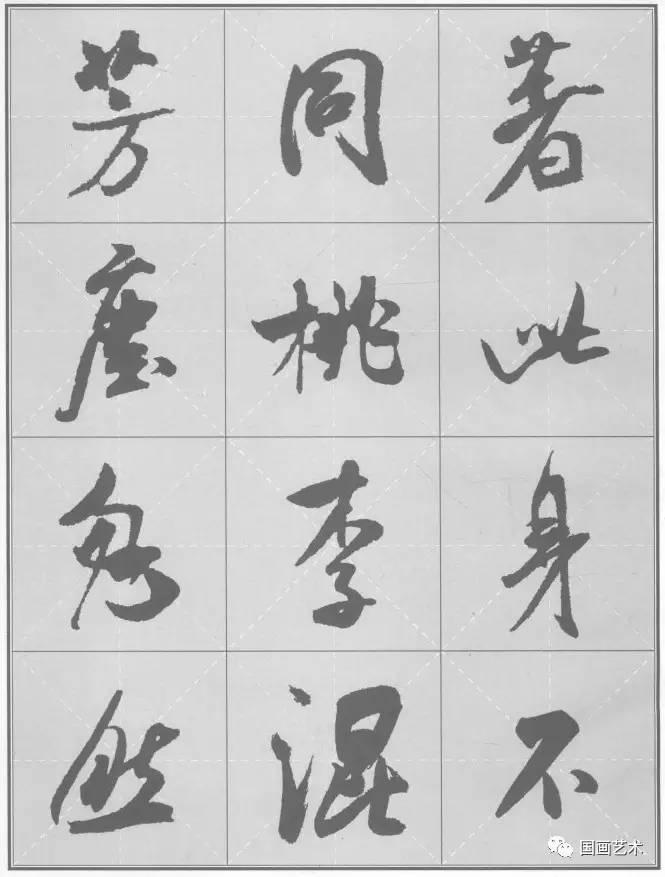 著此身不
同桃李混
芳塵忽然
国画艺术